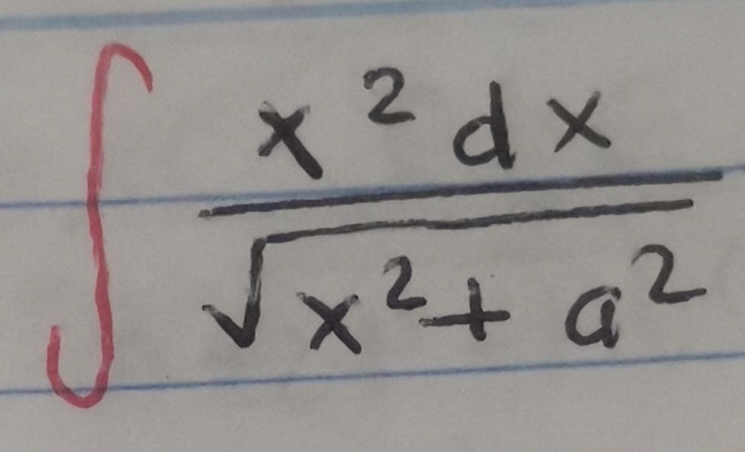 ∫ x² dx / √(x² + a²)